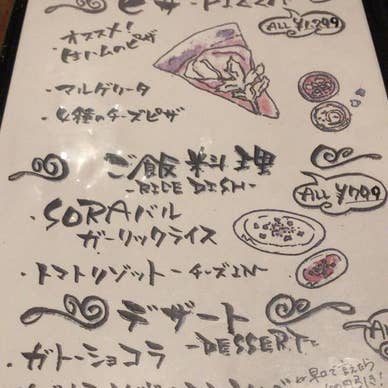 ピザ -PIZZA-
ALL ¥1,299
・オススメ!
生ハムのピザ
・マルゲリータ
・4種のチーズピザ
ご飯料理
-RICE DISH-
ALL ¥799
・SORAバル
ガーリックライス
・トマトリゾット-チーズIN-
デザート
-DESSERT-
・ガトーショコラ